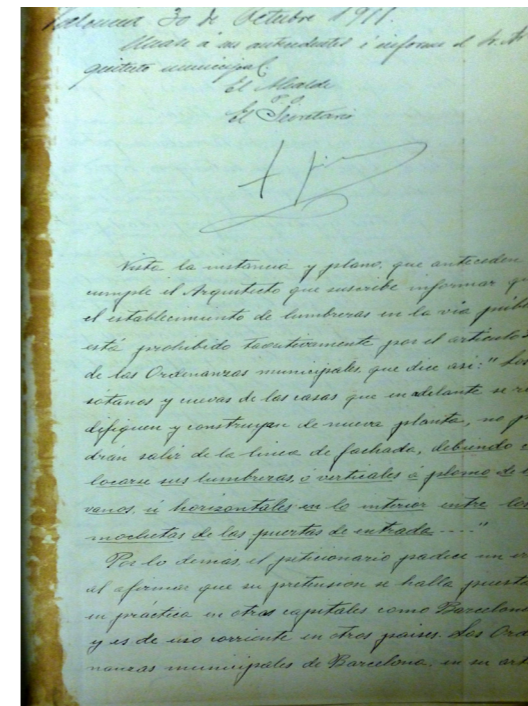 Valencia 30 de Octubre 1911.
Únase á sus antecedentes é informe el Sr. Ar
quitecto municipal.
El Alcalde
P.O.
El Secretario
Vista la instancia y plano, que anteceden
cumple el Arquitecto que suscribe informar qu
el establecimiento de lumbreras en la vía públi
está prohibido taxativamente por el artículo
de las Ordenanzas municipales que dice asi: "Los
sotanos y cuevas de las casas que en adelante se re
difiquen y construyan de nueva planta, no p
drán salir de la linea de fachada, debiendo c
locarse sus lumbreras, ó verticales á plomo de l
vanos, ú horizontales en lo interior entre los
mochetas de las puertas de entrada ....."
Por lo demás, el peticionario padece un er
al afirmar que su pretension se halla puesta
en practica en otras capitales como Barcelona
y es de uso corriente en otros paises. Las Orde
nanzas municipales de Barcelona, en su art